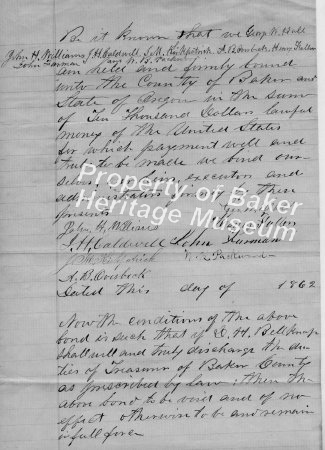 Be it known that we Geo W. Hall
John H. Williams J. H. Caldwell J. M. Kirkpatrick A. B. Henry Fuller
John Furman and W. B.
am held and firmly bound
unto the County of Baker and
State of Oregon in the sum
of Ten Thousand Dollars lawful
money of the United States
for which payment well and
truly to be made we bind our
selves, executors and
administrators by these
presents
John H. Williams
J. H. Caldwell John Furman
J. M. Kirkpatrick W. B.
A. B.
Dated this day of 1862
Now the conditions of the above
bond is such that if L. H. Belknap
shall well and truly discharge the du-
ties of Treasurer of Baker County
as prescribed by law; then the
above bond to be void and of no
effect otherwise to be and remain
in full force
Property of Baker
Heritage Museum